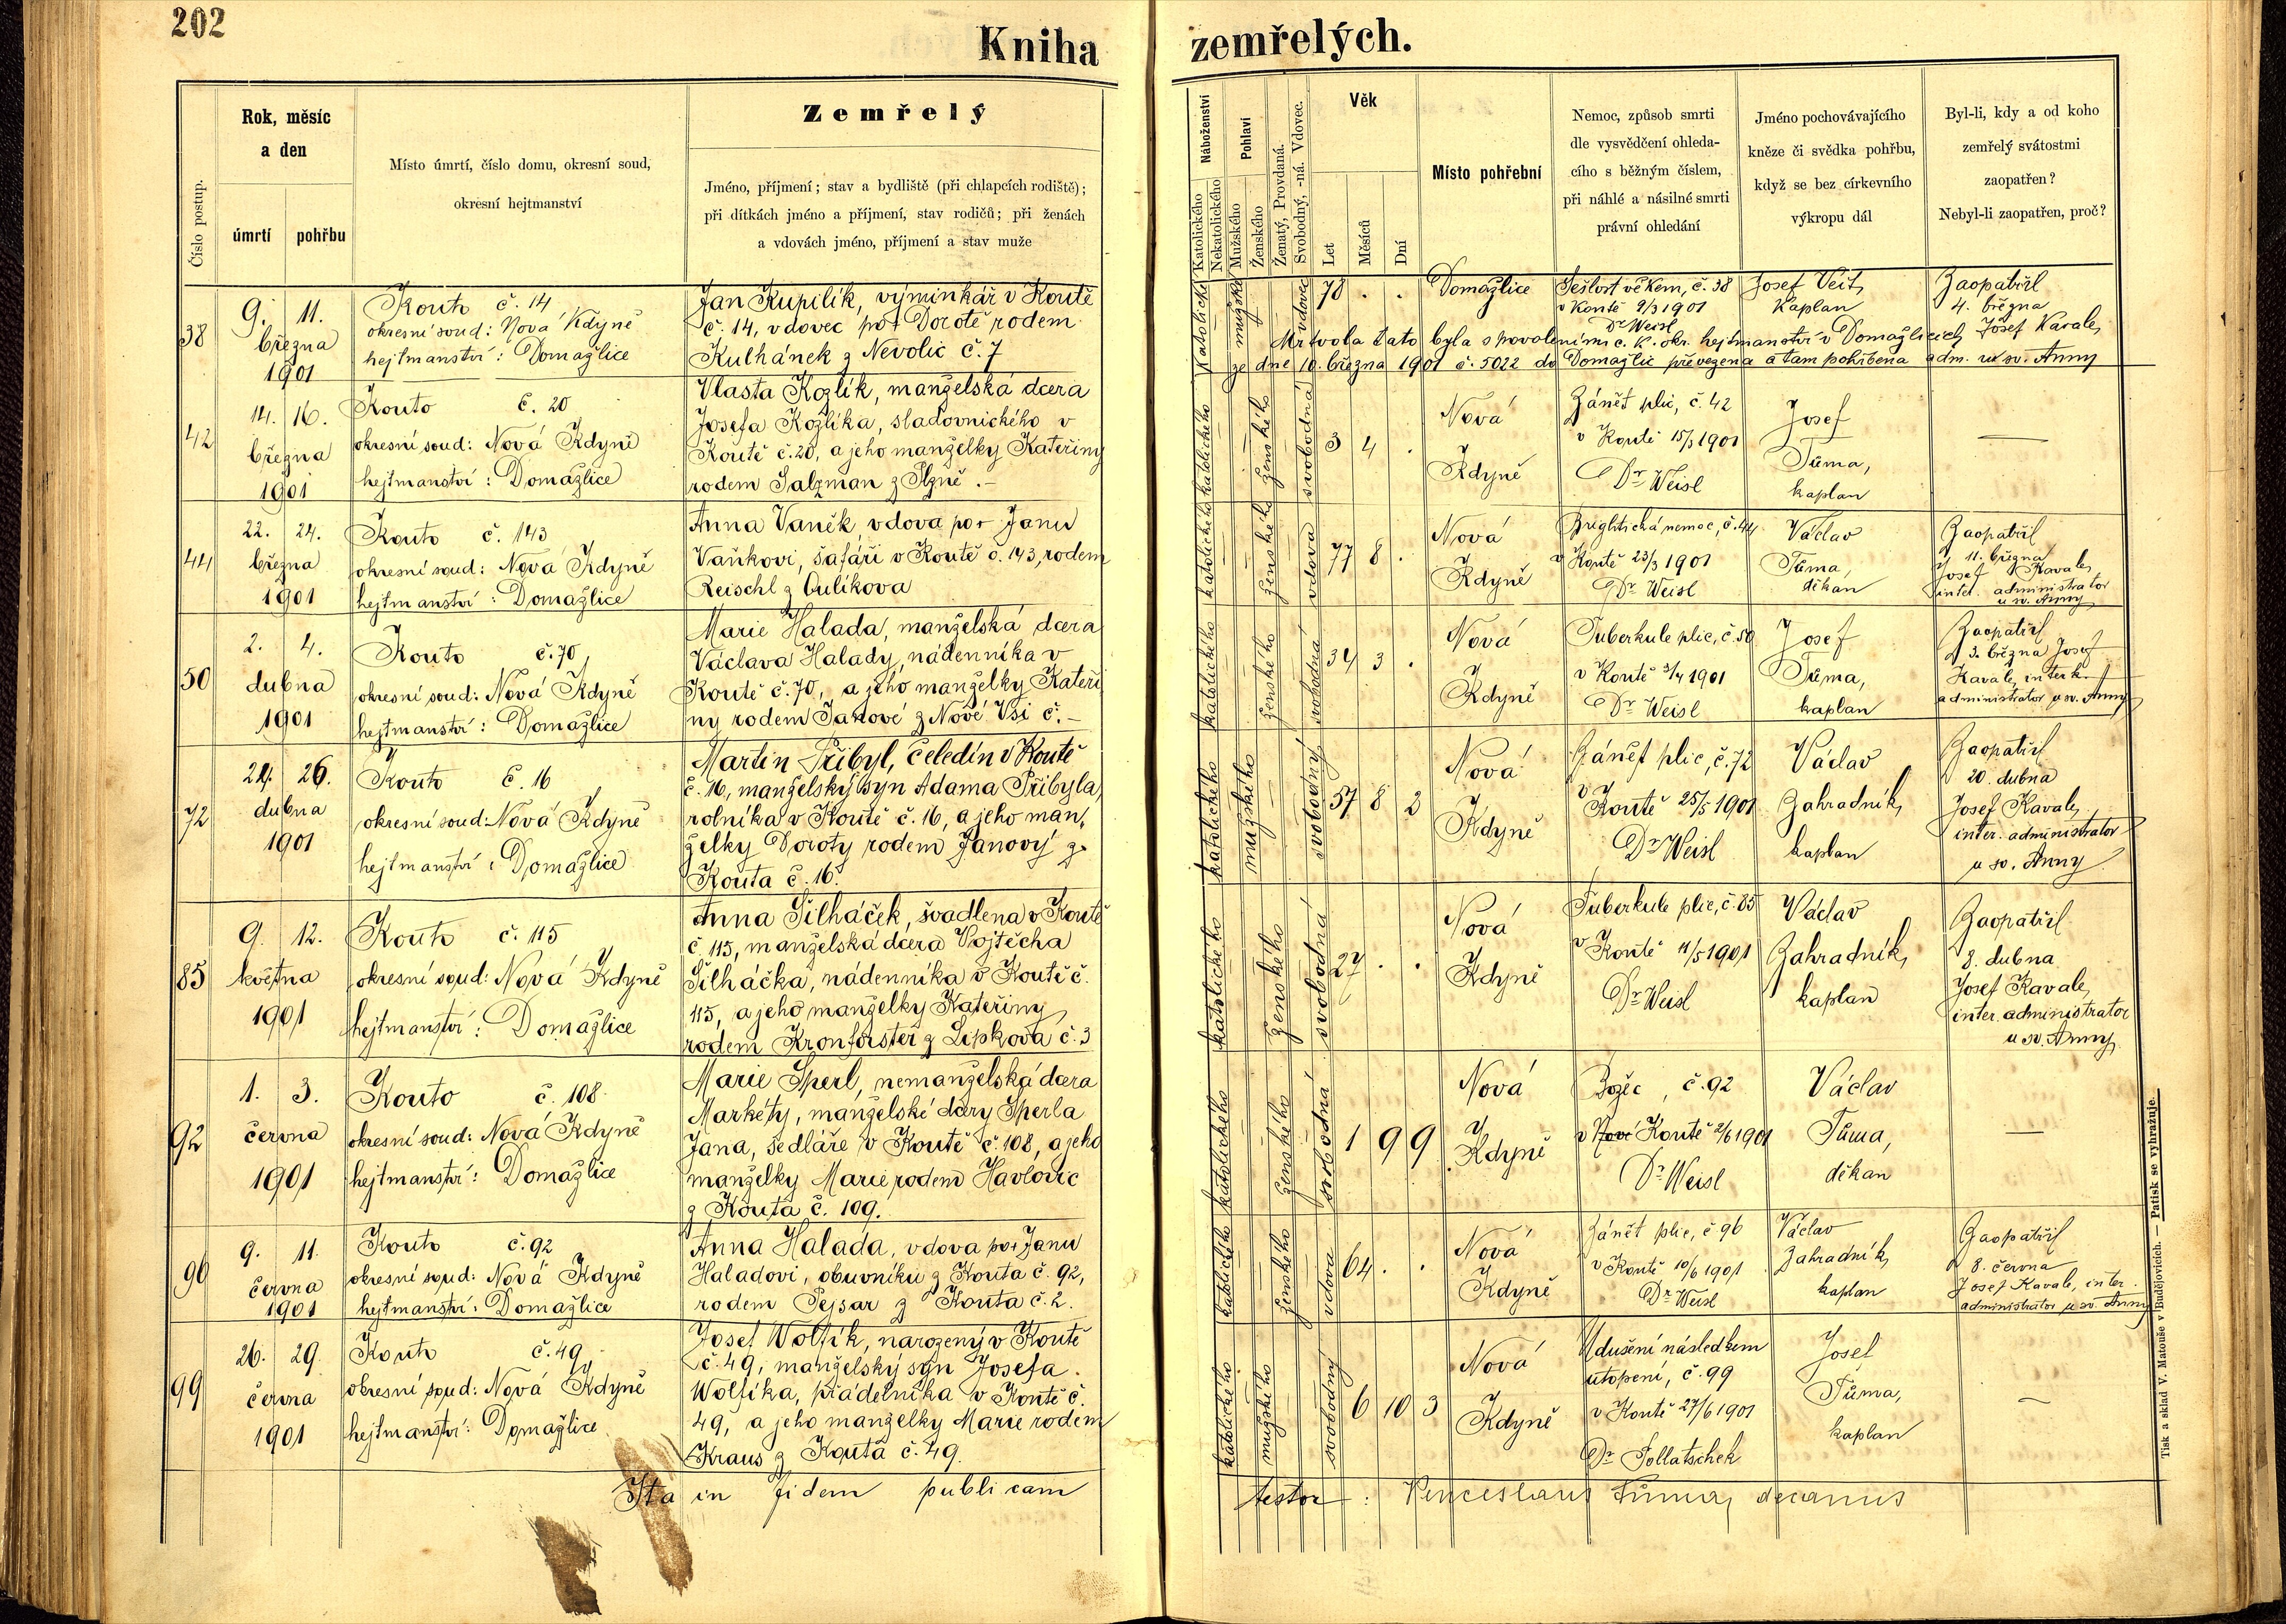 202
Kniha zemřelých.
Číslo postup.
Rok, měsíc
a den
úmrtí pohřbu
Místo úmrtí, číslo domu, okresní soud,
okresní hejtmanství
Zemřelý
Jméno, příjmení; stav a bydliště (při chlapcích rodiště);
při dítkách jméno a příjmení, stav rodičů; při ženách
a vdovách jméno, příjmení a stav muže
Náboženství
Katolického
Nekatolického
Pohlaví
Mužského
Ženského
Ženatý, Provdaná.
Svobodný, -ná. Vdovec.
Věk
Let
Měsíců
Dní
Místo pohřební
Nemoc, způsob smrti
dle vysvědčení ohleda-
cího s běžným číslem,
při náhlé a násilné smrti
právní ohledání
Jméno pochovávajícího
kněze či svědka pohřbu,
když se bez církevního
výkropu dál
Byl-li, kdy a od koho
zemřelý svátostmi
zaopatřen?
Nebyl-li zaopatřen, proč?
38
9. 11.
března
1901
Kouto č. 14
okresní soud: Nová Kdyně
hejtmanství: Domažlice
Jan Kupilík, výminkář v Koutě
č. 14, vdovec po † Dorotě rodem
Kulhánek z Nevolic č. 7
katolické
mužské
vdovec
78 . .
Domažlice
Sešlost věkem, č. 38
v Koutě 9/3 1901
Dr Weisl
Josef Veit,
kaplan
Zaopatřil
4. března
Josef Kavale,
adm. u sv. Anny
Mrtvola tato byla s povolením c. k. okr. hejtmanství v Domažlicích
ze dne 10. března 1901 č. 5022 do Domažlic převezena a tam pohřbena
42
14. 16.
března
1901
Kouto č. 20
okresní soud: Nová Kdyně
hejtmanství: Domažlice
Vlasta Kozlík, manželská dcera
Josefa Kozlíka, sladovnického v
Koutě č. 20, a jeho manželky Kateřiny
rodem Salzman z Plzně. -
katolického
ženského
svobodná
3 4 .
Nová
Kdyně
Zánět plic, č. 42
v Koutě 15/3 1901
Dr Weisl
Josef
Tůma,
kaplan
—
44
22. 24.
března
1901
Kouto č. 143
okresní soud: Nová Kdyně
hejtmanství: Domažlice
Anna Vaněk, vdova po † Janu
Vaňkovi, šafáři v Koutě č. 143, rodem
Reischl z Čulíkova
katolického
ženského
vdova
77 8 .
Nová
Kdyně
Brightická nemoc, č. 44
v Koutě 23/3 1901
Dr Weisl
Václav
Tůma,
děkan
Zaopatřil
11. března
Josef Kavale,
inter. administrator
u sv. Anny
50
2. 4.
dubna
1901
Kouto č. 70,
okresní soud: Nová Kdyně
hejtmanství: Domažlice
Marie Halada, manželská dcera
Václava Halady, nádenníka v
Koutě č. 70, a jeho manželky Kateři
ny rodem Janové z Nové Vsi č. -
katolického
ženského
svobodná
34 3 .
Nová
Kdyně
Tuberkule plic, č. 50
v Koutě 3/4 1901
Dr Weisl
Josef
Tůma,
kaplan
Zaopatřil
3. března Josef
Kavale, interk.
administrator u sv. Anny
72
24. 26.
dubna
1901
Kouto č. 16
okresní soud: Nová Kdyně
hejtmanství: Domažlice
Martin Přibyl, čeledín v Koutě
č. 16, manželský syn Adama Přibyla,
rolníka v Koutě č. 16, a jeho man,
želky Doroty rodem Janový z
Kouta č. 16.
katolického
mužského
svobodný
57 8 2
Nová
Kdyně
Zánět plic, č. 72
v Koutě 25/5 1901
Dr Weisl
Václav
Zahradník,
kaplan
Zaopatřil
20. dubna
Josef Kavale,
inter. administrator
u sv. Anny
85
9. 12.
května
1901
Kouto č. 115
okresní soud: Nová Kdyně
hejtmanství: Domažlice
Anna Šilháček, švadlena v Koutě
č. 115, manželská dcera Vojtěcha
Šilháčka, nádenníka v Koutě č.
115, a jeho manželky Kateřiny
rodem Kronforster z Lipkova č. 3
katolického
ženského
svobodná
27 . .
Nová
Kdyně
Tuberkule plic, č. 85
v Koutě 11/5 1901
Dr Weisl
Václav
Zahradník,
kaplan
Zaopatřil
8. dubna
Josef Kavale,
inter. administrator
u sv. Anny
92
1. 3.
června
1901
Kouto č. 108
okresní soud: Nová Kdyně
hejtmanství: Domažlice
Marie Sperl, nemanželská dcera
Markéty, manželské dcery Sperla
Jana, sedláře v Koutě č. 108, a jeho
manželky Marie rodem Havlovic
z Kouta č. 109.
katolického
ženského
svobodná
1 9 9
Nová
Kdyně
Božec, č. 92
v Nové Koutě 2/6 1901
Dr Weisl
Václav
Tůma,
děkan
—
96
9. 11.
června
1901
Kouto č. 92
okresní soud: Nová Kdyně
hejtmanství: Domažlice
Anna Halada, vdova po † Janu
Haladovi, obuvníku z Kouta č. 92,
rodem Pejsar z Kouta č. 2.
katolického
ženského
vdova
64 . .
Nová
Kdyně
Zánět plic, č 96
v Koutě 10/6 1901
Dr Weisl
Václav
Zahradník,
kaplan
Zaopatřil
8. června
Josef Kavale, inter.
administrator u sv. Anny
99
26. 29.
června
1901
Kouto č. 49
okresní soud: Nová Kdyně
hejtmanství: Domažlice
Josef Wolfík, narozený v Koutě
č. 49, manželský syn Josefa
Wolfíka, přádelníka v Koutě č.
49, a jeho manželky Marie rodem
Kraus z Kouta č. 49.
katolického
mužského
svobodný
6 10 3
Nová
Kdyně
Udušení následkem
utopení, č. 99
v Koutě 27/6 1901
Dr Pollatschek
Josef
Tůma,
kaplan
—
Ita in fidem publicam testor: Venceslaus Tůma, decanus
Tisk a sklad V. Matouše v Budějovicích. — Patisk se vyhražuje.